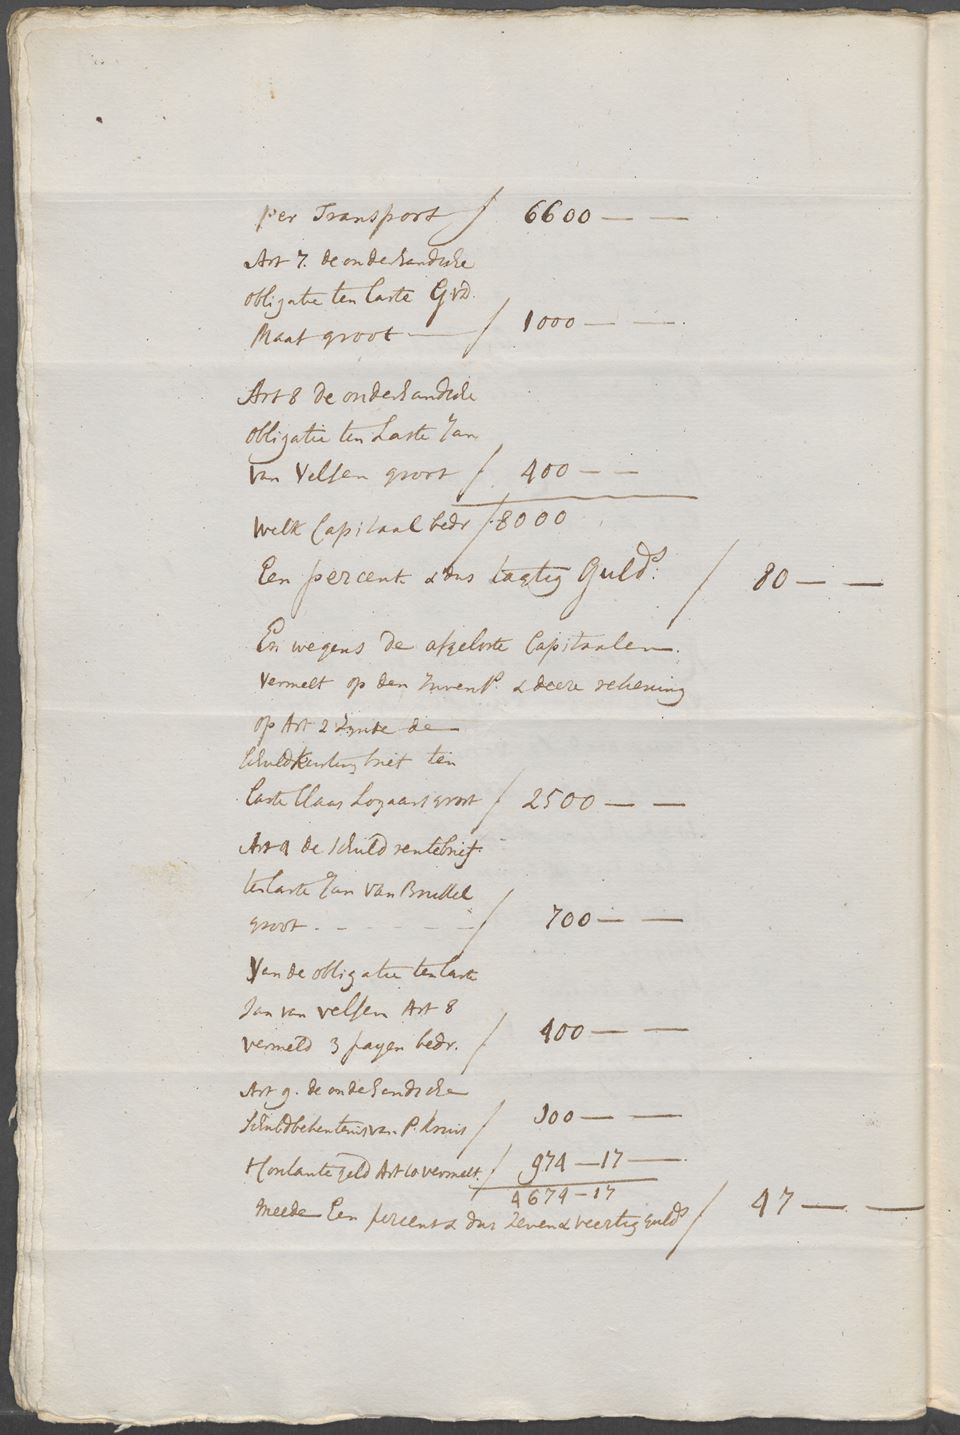 per Transport f 6600 — —
Art 7. de onderhandsche
obligatie ten laste G vd.
Maat groot — f 1000 — —
Art 8 de onderhandsche
obligatie ten Laste Jan
van Velsen groot f 400 — —
Welk Capitaal bedr f 8000
Een percent & dus tagtig Guld.s f 80 — —
En wegens de afgeloste Capitaalen
vermelt op den Invent.s & deeze rekening
op Art 2 zynde de
schuldkusting brief ten
laste Claas Logaart groot f 2500 — —
Art 4 de schuld rentebrief
ten laste Jan van Brussel
groot . - - - - f 700 — —
Van de obligatie ten laste
Jan van Velsen Art 8
vermeld 3 payen bedr. f 400 — —
Art 9. de onderhandsche
schuldbekentenis van P. Kruis f 100 — —
t Contante geld Art 10 vermelt. f 974 — 17 —
4674 — 17
meede Een percent & dus zeven & veertig guld.s f 47 — —